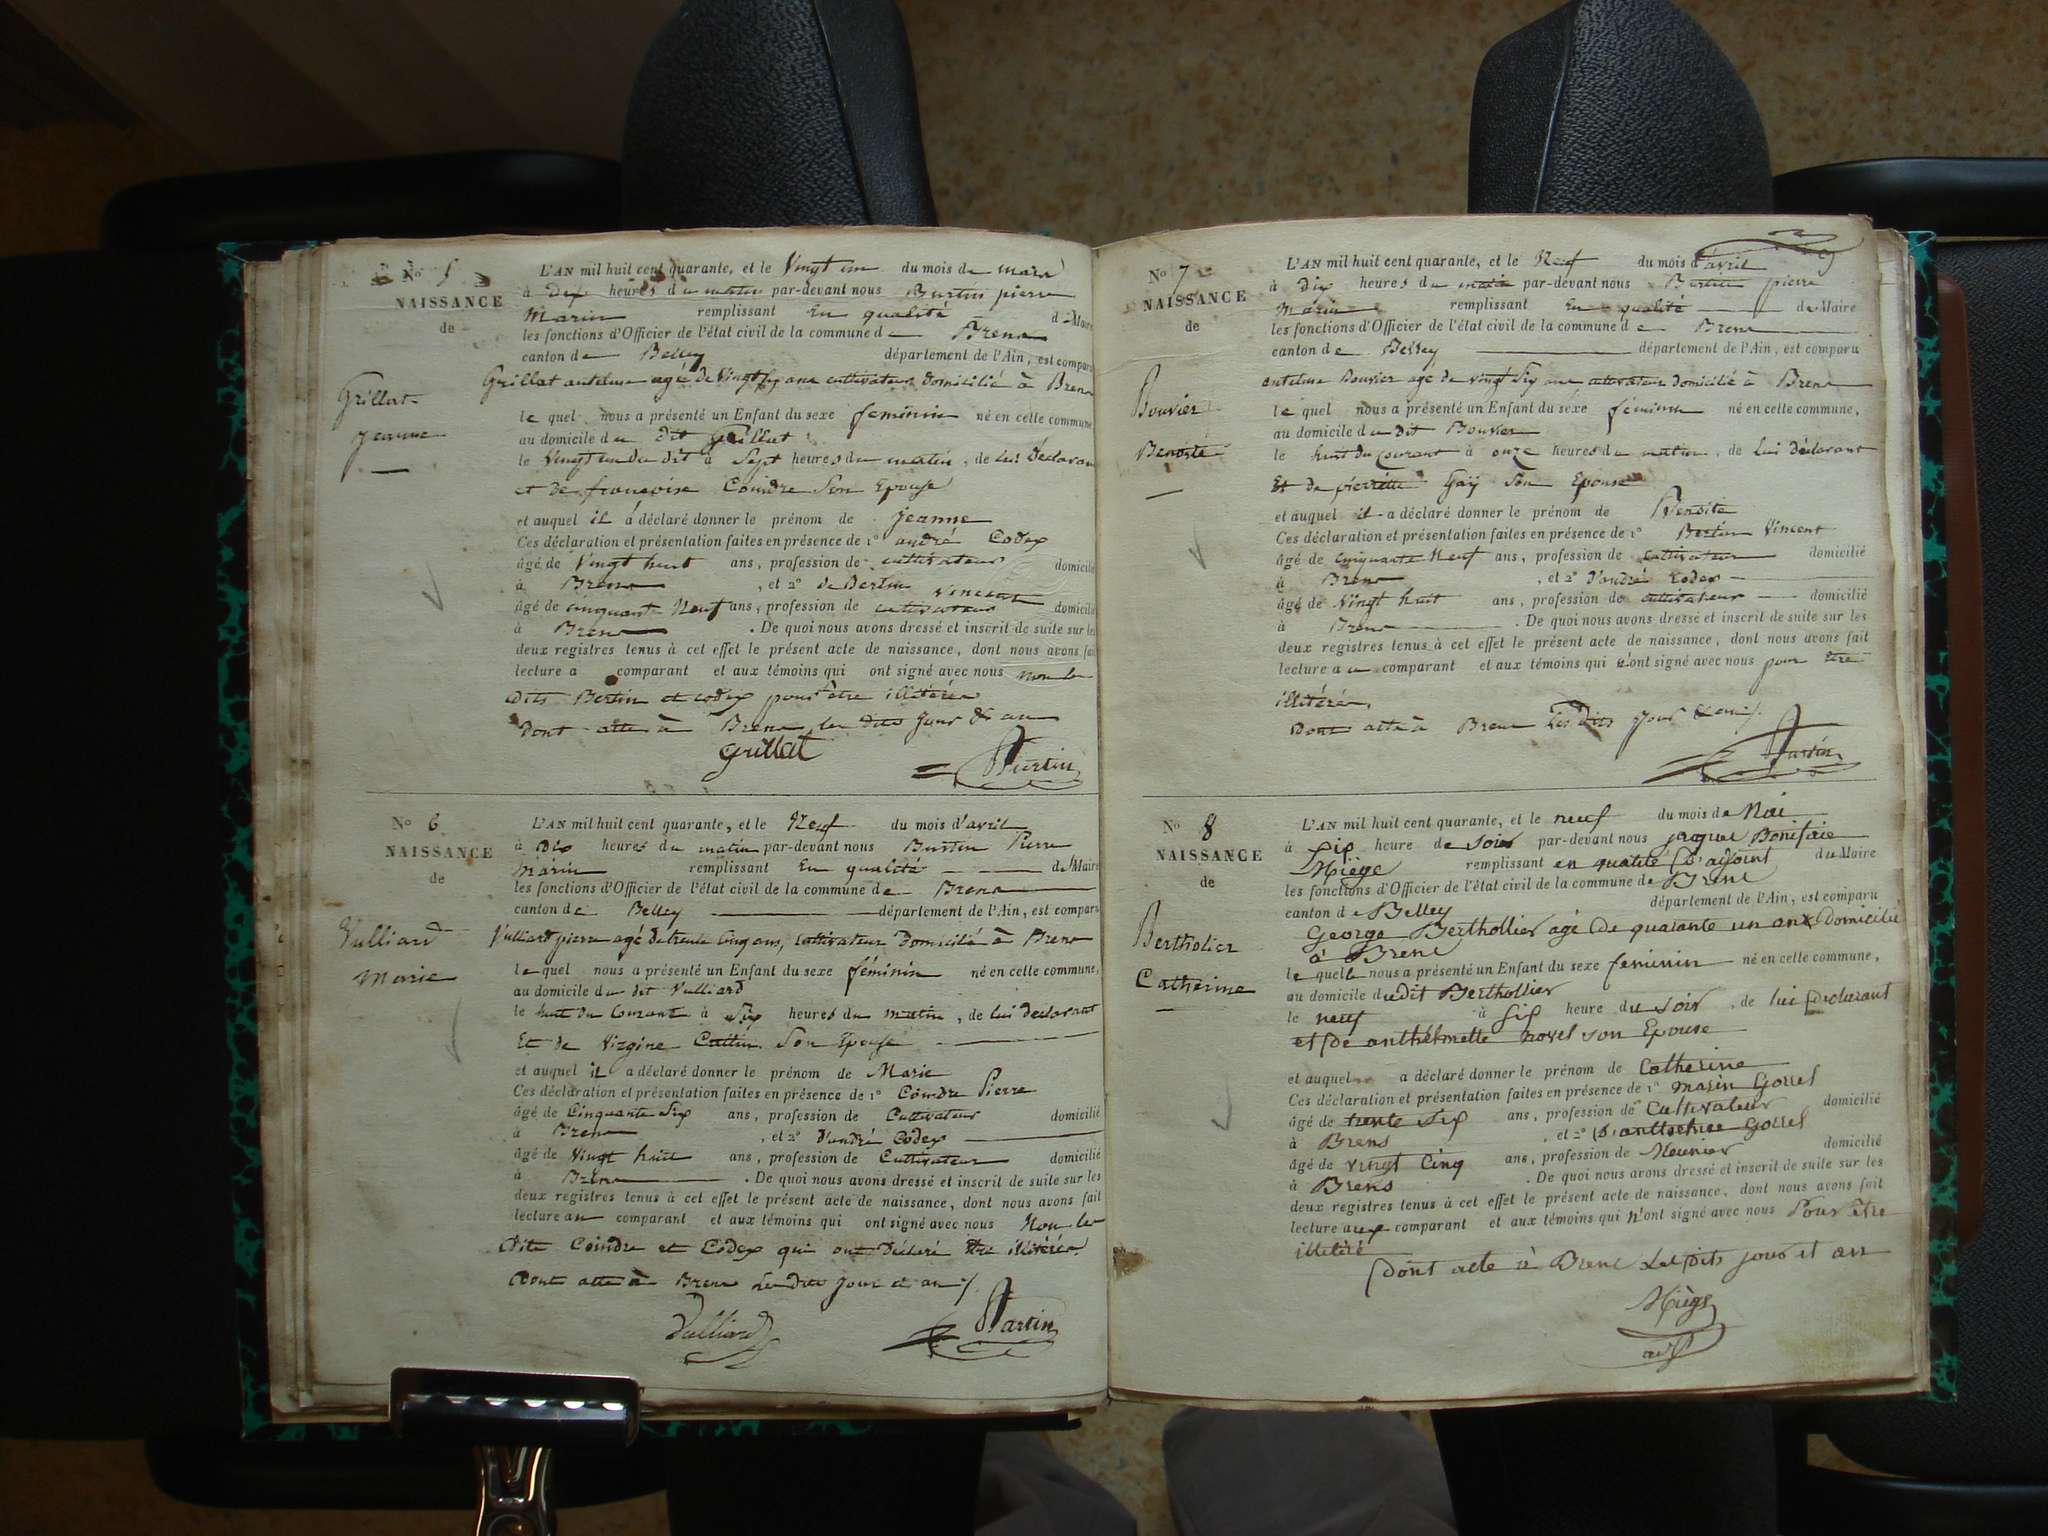 No 5
NAISSANCE
de
Grillat
Jeanne
L'AN mil huit cent quarante, et le Vingt un du mois de mars
à dix heures du matin par-devant nous Burtin pierre
Marin remplissant En qualité de Maire
les fonctions d'Officier de l'état civil de la commune de Brens
canton de Belley département de l'Ain, est comparu
Grillat antelme agé de vingt six ans cultivateur domicilié à Brens
le quel nous a présenté un Enfant du sexe féminin né en cette commune
au domicile du dit Grillat
le Vingt un du dit à Sept heures du matin, de lui Déclarant
et de françoise Coindre Son Epouse
et auquel il a déclaré donner le prénom de Jeanne
Ces déclaration et présentation faites en présence de 1° andré Codex
âgé de Vingt huit ans, profession de cultivateur domicilié
à Brens, et 2° de Bertin Vincent
âgé de cinquante Neuf ans, profession de cultivateur domicilié
à Brens. De quoi nous avons dressé et inscrit de suite sur les
deux registres tenus à cet effet le présent acte de naissance, dont nous avons fait
lecture a comparant et aux témoins qui ont signé avec nous non le
dits Bertin et codex pour être illitérés
Dont acte à Brens les dits jour & an
Grillat Burtin
No 6
NAISSANCE
de
Vulliard
Marie
L'AN mil huit cent quarante, et le Neuf du mois d'avril
à Dix heures du matin par-devant nous Burtin Pierre
Marin remplissant En qualité de Maire
les fonctions d'Officier de l'état civil de la commune de Brens
canton de Belley département de l'Ain, est comparu
Vulliard pierre agé de trente Cinq ans, Cultivateur Domicilié à Brens
le quel nous a présenté un Enfant du sexe féminin né en cette commune,
au domicile du dit Vulliard
le huit du Courant à Six heures du matin, de lui déclarant
Et de Virgine Cattin Son Epouse
et auquel il a déclaré donner le prénom de Marie
Ces déclaration et présentation faites en présence de 1° Coindre Pierre
âgé de Cinquante Six ans, profession de Cultivateur domicilié
à Brens, et 2° d'andré Codex
âgé de Vingt huit ans, profession de Cultivateur domicilié
à Brens. De quoi nous avons dressé et inscrit de suite sur les
deux registres tenus à cet effet le présent acte de naissance, dont nous avons fait
lecture au comparant et aux témoins qui ont signé avec nous Non les
Dits Coindre et Codex qui ont Déclaré être illitérés
Dont acte à Brens Les dits jour et an
Vulliard Burtin
No 7
NAISSANCE
de
Bouvier
Benoite
L'AN mil huit cent quarante, et le Neuf du mois d'avril
à Dix heures du matin par-devant nous Burtin pierre
Marin remplissant En qualité de Maire
les fonctions d'Officier de l'état civil de la commune de Brens
canton de Belley département de l'Ain, est comparu
antelme Bouvier agé de vingt Six ans cultivateur domicilié à Brens
le quel nous a présenté un Enfant du sexe féminin né en cette commune,
au domicile du dit Bouvier
le huit du courant à onze heures du matin, de Lui déclarant
Et de pierrette Gay Son Epouse
et auquel il a déclaré donner le prénom de Benoite
Ces déclaration et présentation faites en présence de 1° Bertin Vincent
âgé de cinquante Neuf ans, profession de cultivateur domicilié
à Brens, et 2° d'andré Codex
âgé de Vingt huit ans, profession de cultivateur domicilié
à Brens. De quoi nous avons dressé et inscrit de suite sur les
deux registres tenus à cet effet le présent acte de naissance, dont nous avons fait
lecture au comparant et aux témoins qui n'ont signé avec nous pour être
illitérés,
Dont acte à Brens Les Dits jour & an
Burtin
No 8
NAISSANCE
de
Bertholier
Catherine
L'AN mil huit cent quarante, et le neuf du mois de Mai
à Six heure de Soir par-devant nous jaque Bonifaie
Miège remplissant en qualité D'ajoint du Maire
les fonctions d'Officier de l'état civil de la commune de Brens
canton de Belley département de l'Ain, est comparu
George Berthollier agé de quarante un ans Domicilié
à Brens
le quelle nous a présenté un Enfant du sexe feminin né en cette commune,
au domicile du dit Berthollier
le neuf à Six heure du Soir, de lui Declarant
et De anthelmette novel son Epouse
et auquel a déclaré donner le prénom de Catherine
Ces déclaration et présentation faites en présence de 1° Marin Gorrel
âgé de trente Six ans, profession de Cultivateur domicilié
à Brens, et 2° D'anthelme Gorrel
âgé de vingt Cinq ans, profession de Meunier domicilié
à Brens. De quoi nous avons dressé et inscrit de suite sur les
deux registres tenus à cet effet le présent acte de naissance, dont nous avons fait
lecture aux comparant et aux témoins qui n'ont signé avec nous Pour être
illiteré
Dont acte à Brens Les Dits jour et an
Miège
adj